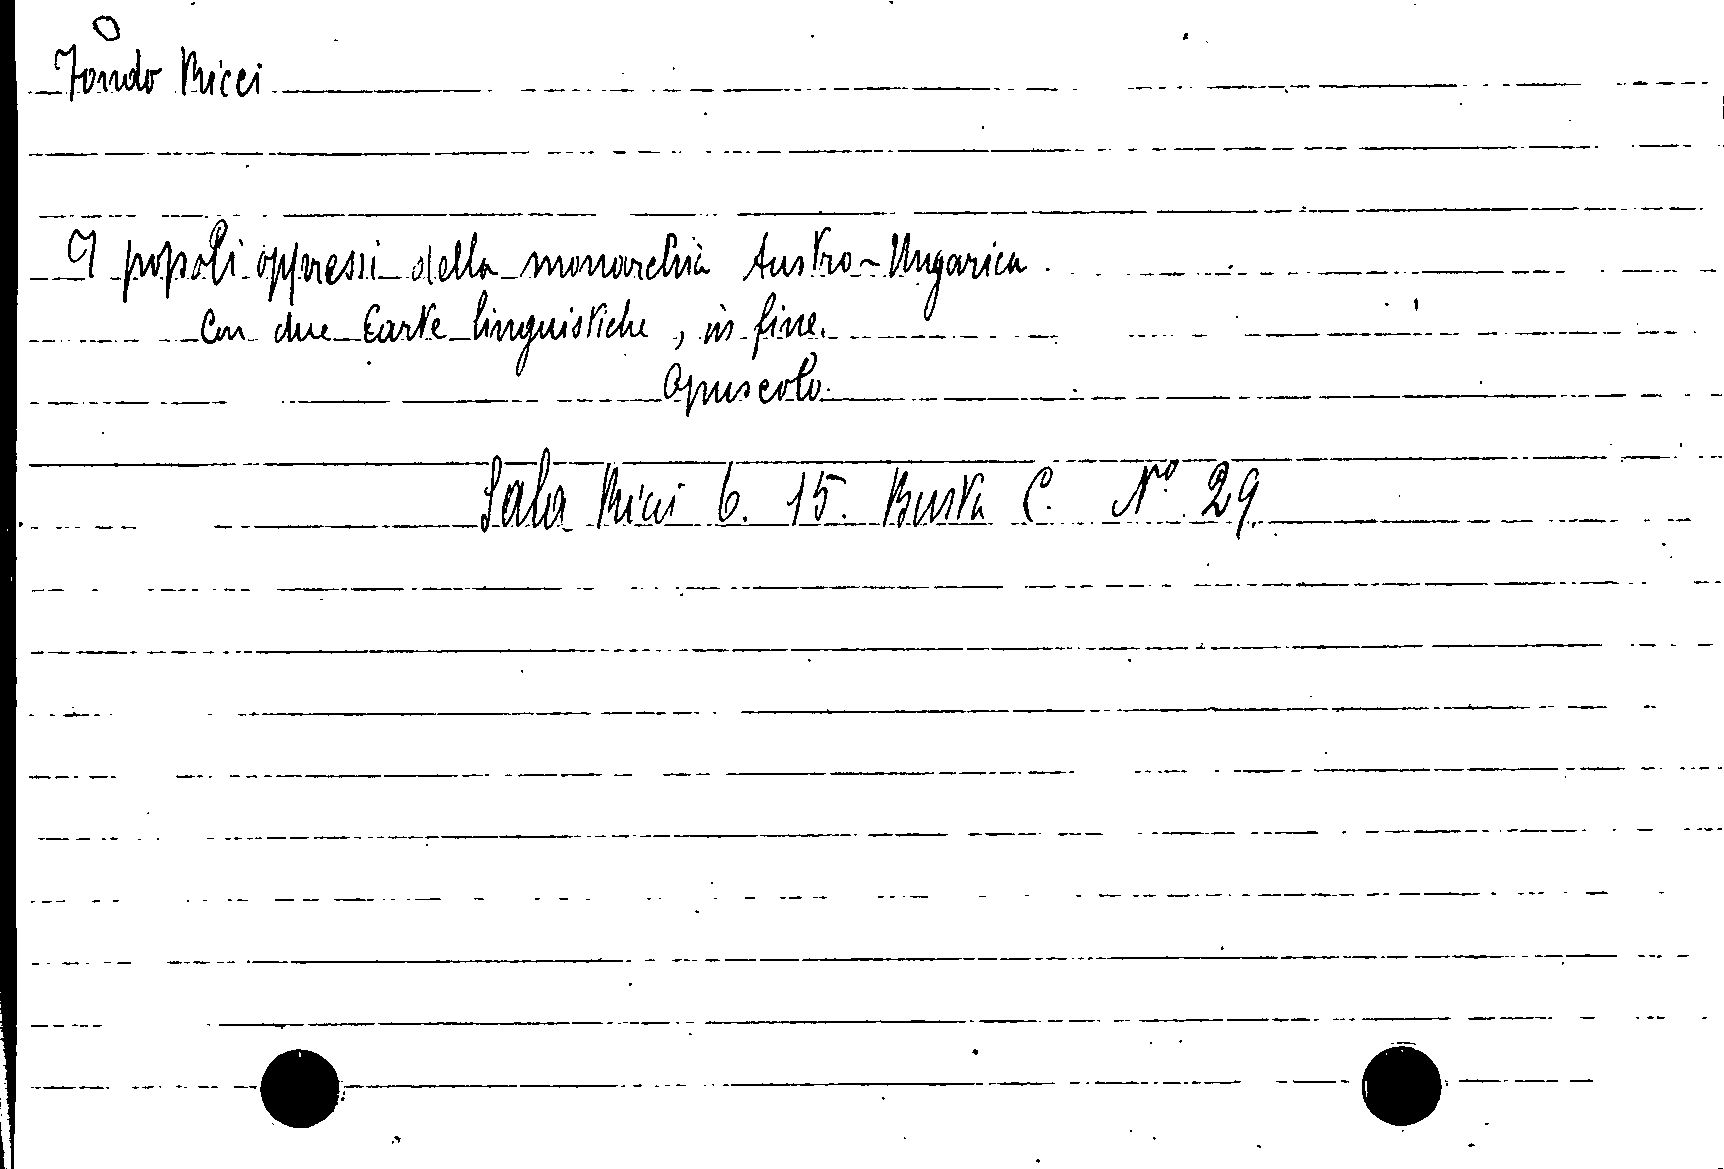 Fondo Ricci
I popoli oppressi della monarchia Austro-Ungarica
Con due Carte linguistiche, in fine.
Opuscolo.
Sala Ricci 6. 15. Busta C. Nº 29.